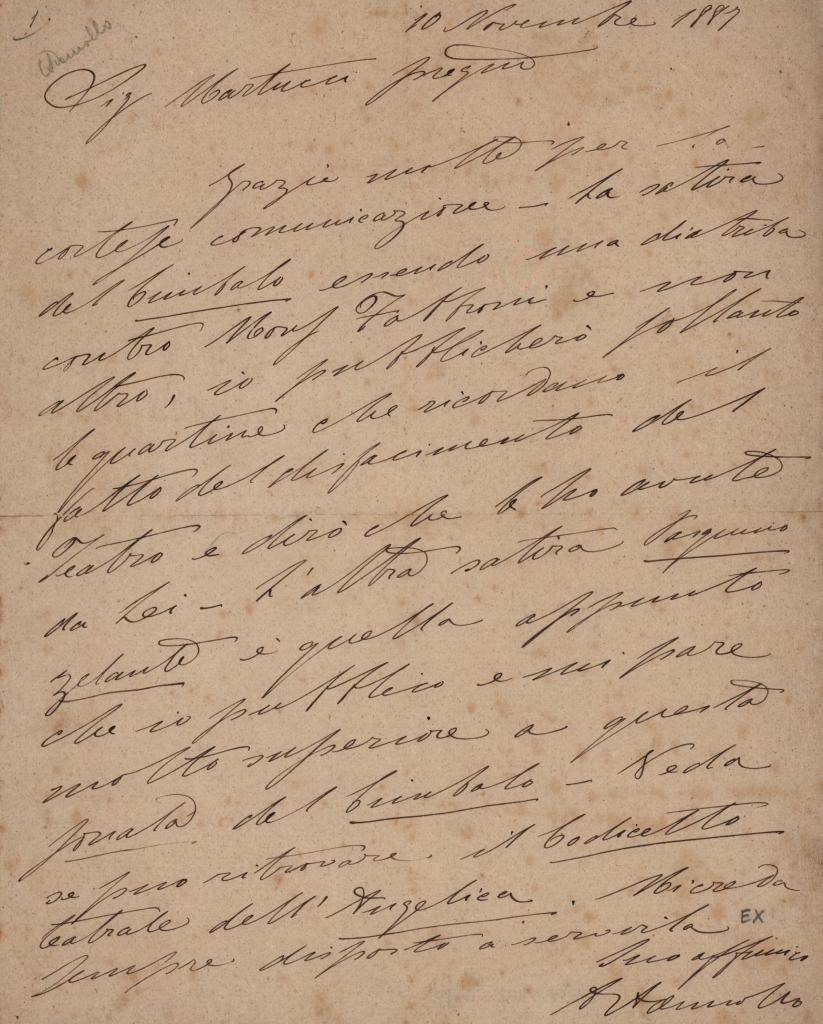 1
10 Novembre 1887
Sig Martucci pregmo
Grazie molte per la
cortese comunicazione – La satira
del Cimbalo essendo una diatriba
contro Mons Fattroni e non
altro, io pubblicherò soltanto
le quartine che ricordano il
fatto del disfacimento del
Teatro e dirò che le ho avute
da Lei – L'altra satira Pasquino
zelante è quella appunto
che io pubblico e mi pare
molto superiore a questa
sonata del Cimbalo – Veda
se può ritrovare il Codicetto
teatrale dell'Angelica. Mi creda
sempre disposto a servirla
EX
Suo affmico
A Ademollo